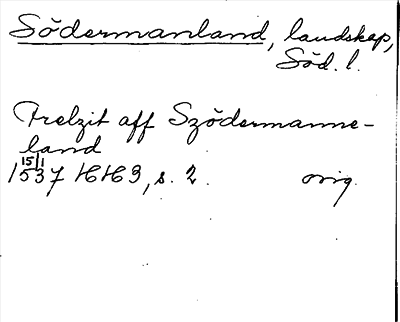 Södermanland, landskap,
Söd. l.
Frelzit aff Szödermanne-
land
15/1
1537 HH3, s. 2. orig.